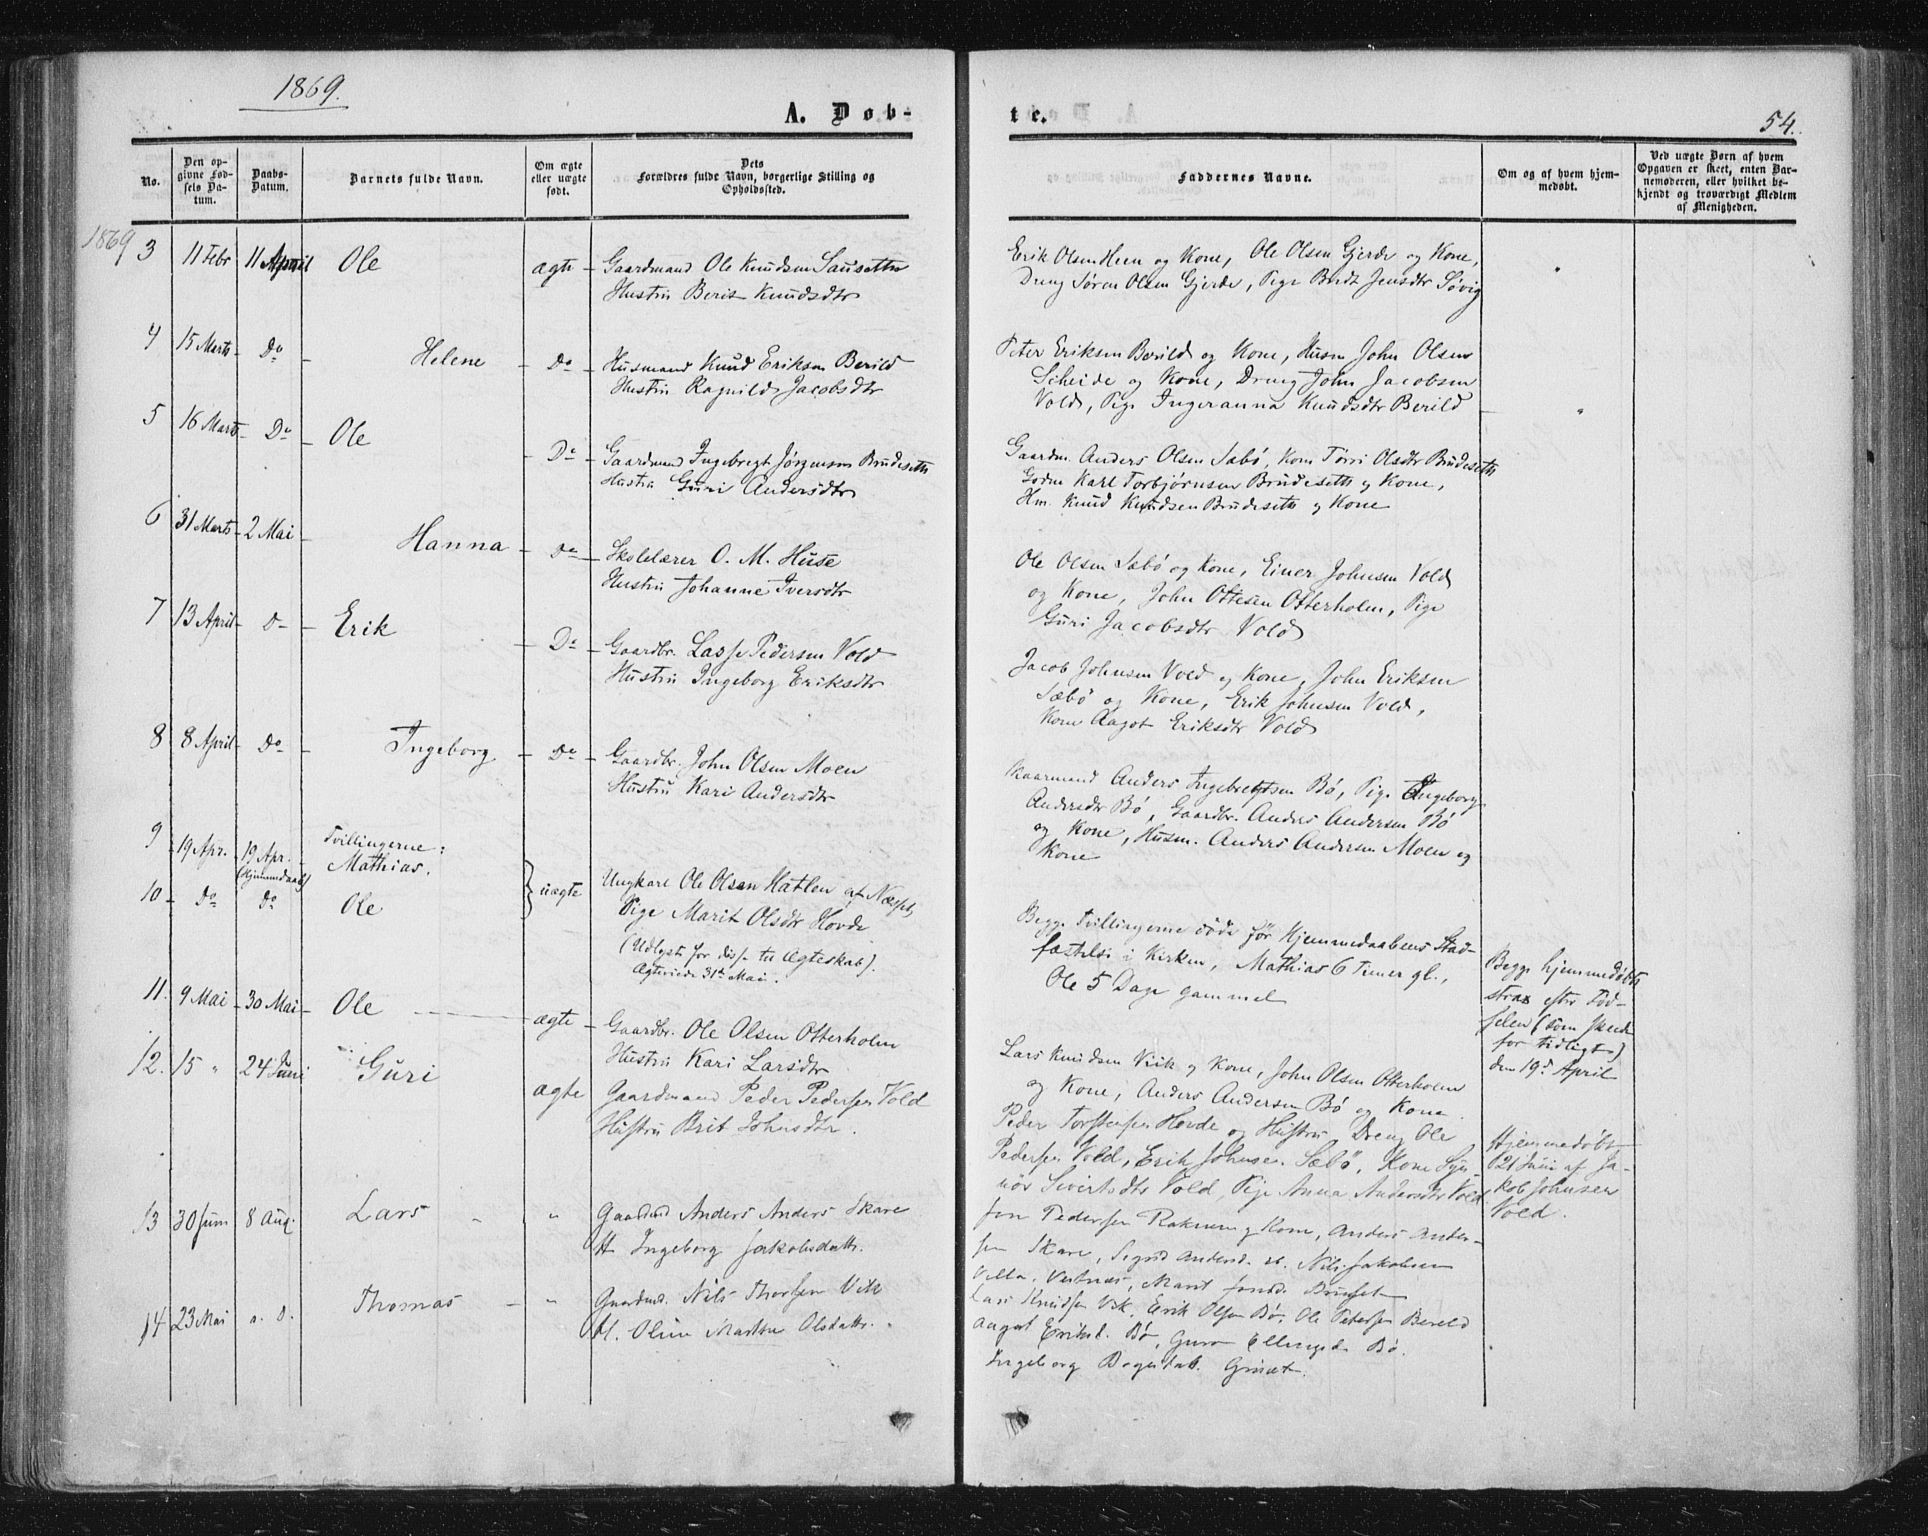 1869.
A. Døb-
te.
54.
No.
Den op-
givne Fød-
sels Da-
tum.
Daabs-
Datum.
Barnets fulde Navn.
Om ægte
eller uægte
født.
Dets
Forældres fulde Navn, borgerlige Stilling og
Opholdssted.
Faddernes Navne.
Om og af hvem hjem-
medøbt.
Ved uægte Børn af hvem
Opgaven er skeet, enten Bar-
nemoderen, eller hvilket be-
kjendt og troværdigt Medlem
af Menigheden.
1869
3 11 Febr 11 April Ole ægte Gaardmand Ole Knudsen Sausætter
Hustru Berit Knudsdtr
Erik Olsen Heen og Kone, Ole Olsen Gjerde og Kone,
Dreng Søren Olsen Gjerde, Pige Brit Jensdtr Søvig
4 15 Marts Do Helene Do Husmand Knud Eriksen Berild
Hustru Ragnild Jacobsdtr
Peter Eriksen Berild og Kone, Husm John Olsen
Scheide og Kone, Dreng John Jacobsen
Vold, Pige Ingeranna Knudsdtr Berild
5 16 Marts Do Ole Do Gaardmand Ingebregt Jørgensen Brudeseth
Hustru Guri Andersdtr
Gaardm. Anders Olsen Sæbø, Kone Tørri Olsdtr Brudeseth
Godm Karl Torbjørnsen Brudeseth og Kone,
Hm. Knud Knudsen Brudeseth og Kone
6 31 Marts 2 Mai Hanna Do Skolelærer O. M. Huse
Hustru Johanne Iversdtr
Ole Olsen Sæbø og Kone, Einer Johnsen Vold
og Kone, John Ottesen Otterholm, Pige
Guri Jacobsdtr Vold
7 13 April D Erik Do Gaardbr. Lasse Pedersen Vold
Hustru Ingeborg Eriksdtr
Jacob Johnsen Vold og Kone, John Eriksen
Sæbø og Kone, Erik Johnsen Vold,
Kone Aagot Eriksdtr Vold
8 8 April Do Ingeborg Do Gaardbr. John Olsen Moen
Hustru Kari Andersdtr
Kaarmand Anders Ingebregtsen Bø, Pige Ingeborg
Andersdtr Bø, Gaardbr. Anders Andersen Bø
og Kone, Husm. Anders Andersen Moen og
Kone
9 19 Apr. 19 Apr. (Hjemmedaab) Tvillingerne:
Mathias.
10 Do Do Ole
uægte Ungkarl Ole Olsen Hatlen af Næsset,
Pige Marit Olsdtr Hovde
(Udlyst før diss. til Ægteskab).
Ægteviede 31te Mai.
Begge Tvillingerne døde før Hjemmedaabens Stad-
fæstelse i Kirken, Mathias 6 Timer gl.,
Ole 5 Dage gammel
Begge hjemmedøbte
strax efter Fød-
selen (som skede
for tidligt)
den 19d April
11. 9 Mai 30 Mai Ole ægte Gaardbr. Ole Olsen Otterholm
Hustru Kari Larsdtr
Lars Knudsen Viik og Kone, John Olsen Otterholm
og Kone, Anders Andersen Bø og Kone.
12. 15 " 24 Juni Guri ægte Gaardmand Peder Pedersen Vold
Hustru Brit Johnsdtr.
Peder Torstensen Hovde og Hustru, Dreng Ole
Pedersen Vold, Erik Johnse. Sæbø, Kone Syn-
nøv Sivertsdtr Vold, Pige Anna Andersdtr Vold
Hjemmedøbt
21 Juni af Ja-
kob Johnsen
Vold.
13 30 Juni 8 Aug. Lars " Gaardmd Anders Anders. Skare
H. Ingeborg Jakobsdattr.
Jon Pedersen Raknem og Kone, Anders Ander-
sen Skare, Sigrid Andersd. Nils Jakobsen
Villa. Vestnæs, Marit Jonsd. Brusset
14 23 Mai s. d. Thomas " Gaardmd. Nils Thorsen Vik
H. Oline Marthe Olsdattr.
Lars Knudsen Vik, Erik Olsen Bø, Ole Petersen Berild
Aagot Eriksd. Bø, Guro Ellingsd. Bø.
Ingeborg